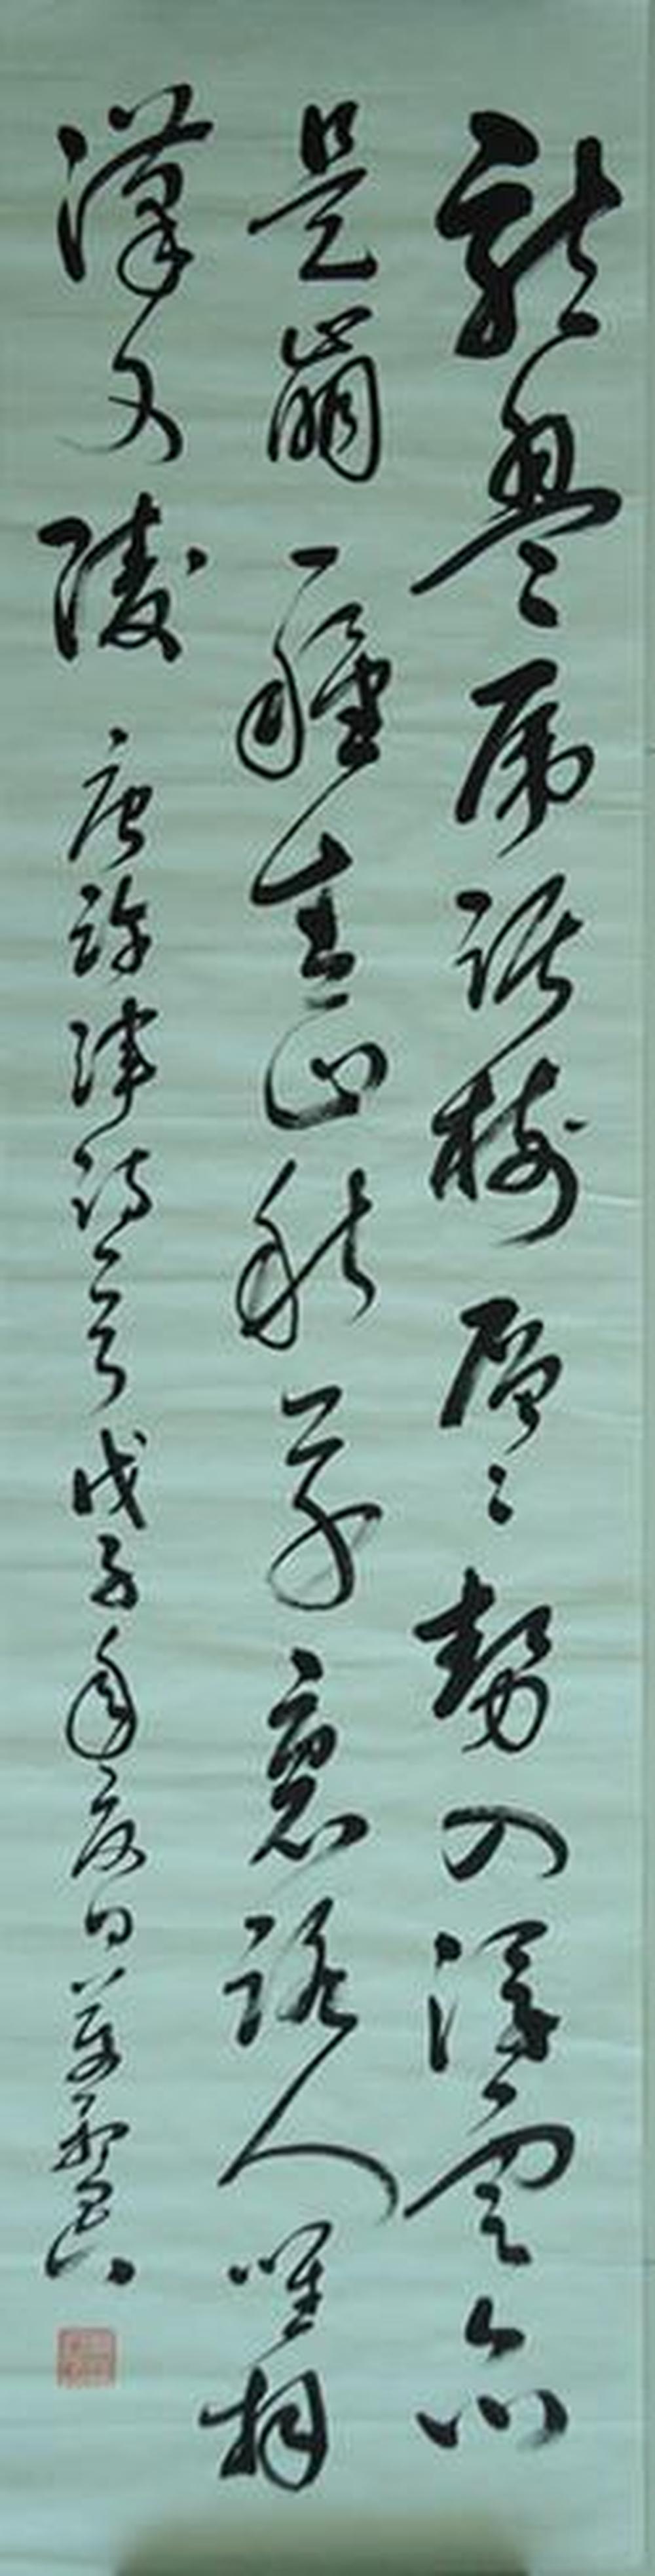 龍盤虎踞樹層々勢入浮雲亦
是崩一種青山秋草裏路人唯拜
漢文陵 唐許渾詩一首 戊子年夏日